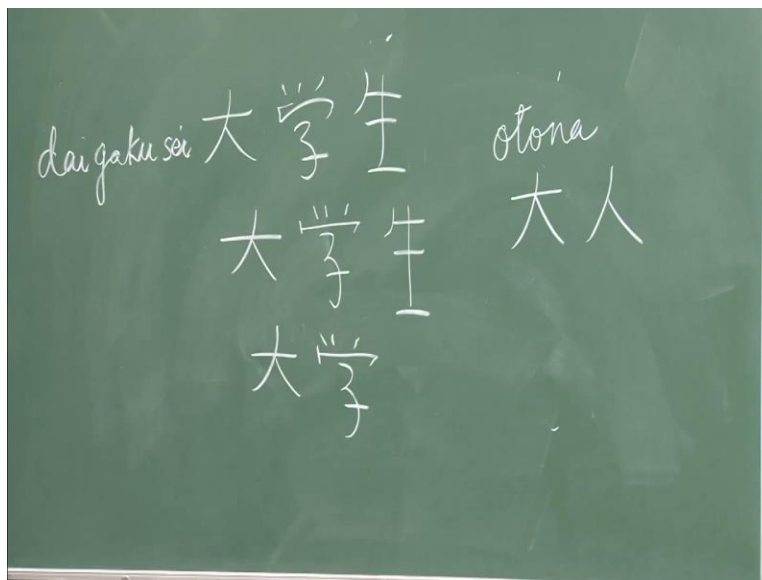 daigakusei 大学生
大学生
大学
otona
大人